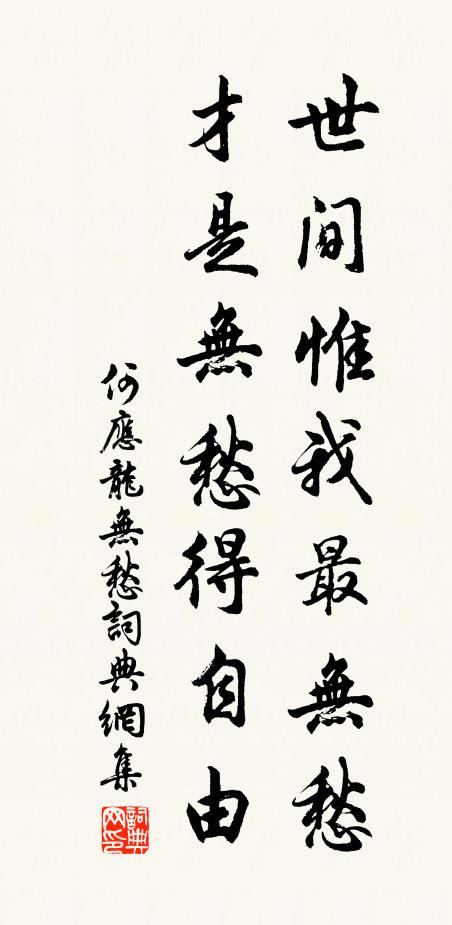 世間惟我最無愁
才是無愁得自由
何應龍無愁詞典網集
詞典
网印